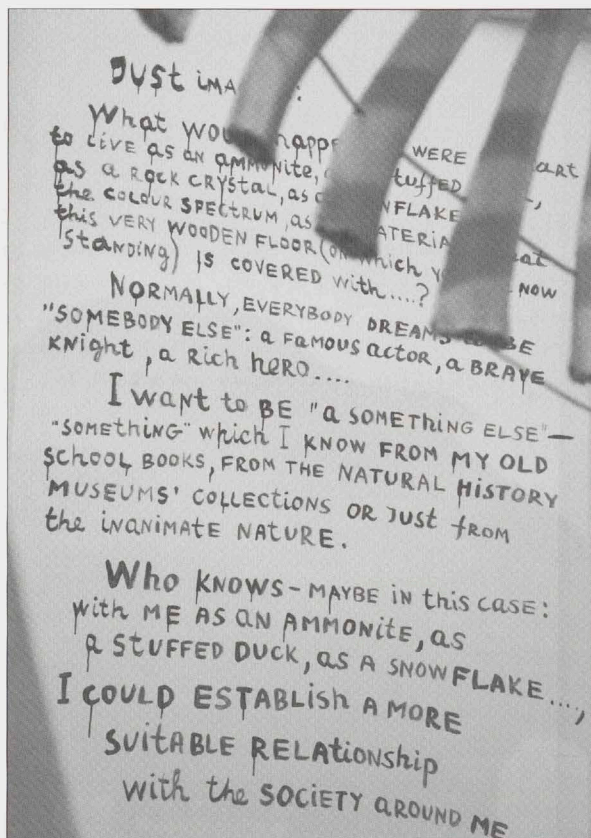 JUST IMA :
What WOU HAPPE WERE ART
to LIVE AS AN AMMONITE, tUFFED ,
AS A ROCK CRYSTAL, AS NFLAKE
the COLOUR SPECTRUM, AS ATERIA at
this VERY WOODEN FLOOR (ON which YO NOW
StANDING) IS COVERED with....?
NORMALLY, EVERYBODY DREAMS BE
"SOMEBODY ELSE": a FAMOUS actor, a BRAVE
KNIGHT, a RICH hERO....
I WANT to BE "a SOMETHING ELSE"—
"SOMEthING" which I KNOW FROM MY OLD
SCHOOL BOOKS, FROM THE NATURAL HISTORY
MUSEUMS' COLLECTIONS OR JUST fROM
the INANIMATE NATURE.
Who KNOWS - MAYBE IN this CASE:
with ME AS AN AMMONITE, AS
a STUFFED DUCK, AS A SNOWFLAKE....,
I COULD ESTABLISH A MORE
SUITABLE RELATIONSHIP
with the SOCIETY AROUND ME